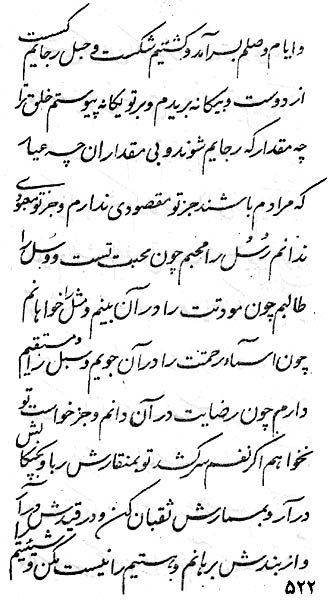 و ایام وصلم بسر آمد و کشتیم شکست و حبل رجایم گسست
از دوست و بیگانه بریدم و بر تو یگانه پیوستم خلق ترا
چه مقدار که رجایم شوند و بی مقداران چه عیار
که مرادم باشند جز تو مقصودی ندارم و جز تو معبودی
ندانم رُسُل را محبم چون محبت تست و وسل را
طالبم چون مودتت را در آن بینم و مثل را خواهانم
چون اسماء رحمتت را در آن جویم و سبل را مستقیم
دارم چون رضایت در آن دانم و جز خواست تو
نخواهم اگر نفسم سر کشد تو بمنقارش ربا و بچنگالش
در آر و بمسمارش ثقبان کن و در قیدش در آر
و از بندش برهانم و هستیم را نیست مکن و شیئیتم را
۵۲۲